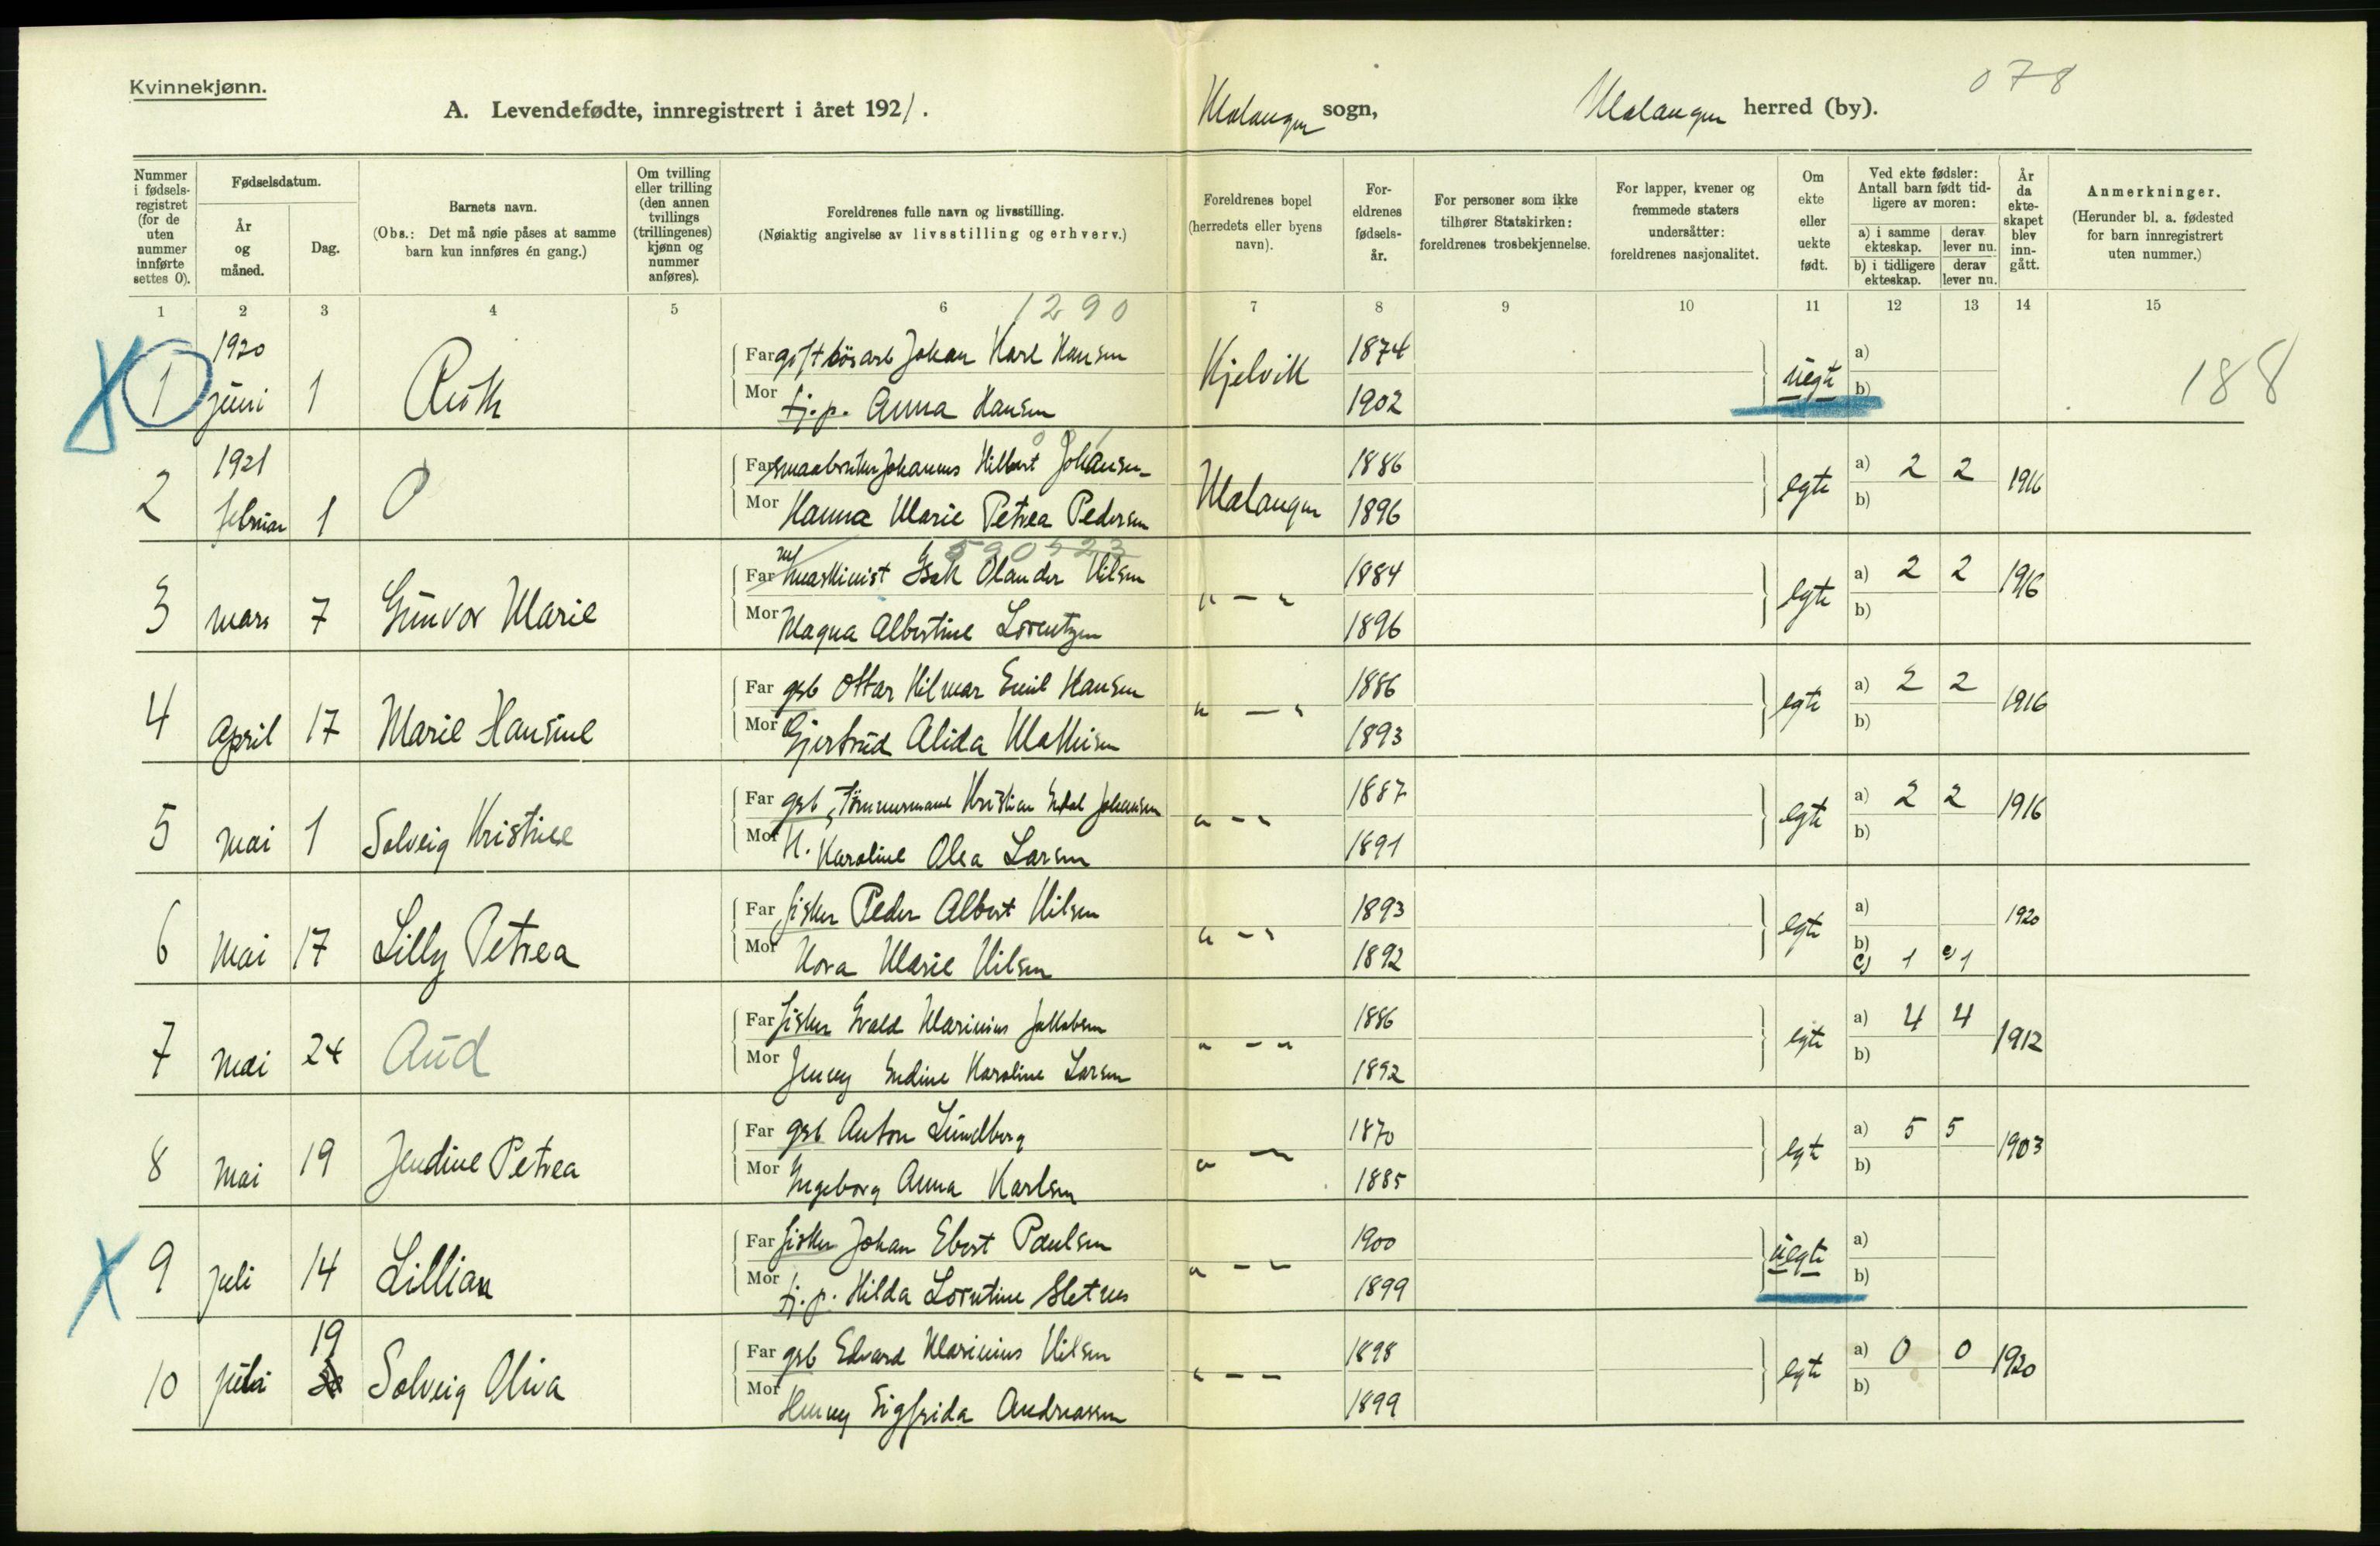 Kvinnekjønn.
A. Levendefødte, innregistrert i året 1921.
Malangen sogn, Malangen herred (by).
078
Nummer i fødsels-registret (for de uten nummer innførte settes 0).
Fødselsdatum.
År og måned.
Dag.
Barnets navn.
(Obs.: Det må nøie påses at samme barn kun innføres én gang.)
Om tvilling eller trilling (den annen tvillings (trillingenes) kjønn og nummer anføres).
Foreldrenes fulle navn og livsstilling.
(Nøiaktig angivelse av livsstilling og erhverv.)
Foreldrenes bopel (herredets eller byens navn).
For-eldrenes fødsels-år.
For personer som ikke tilhører Statskirken: foreldrenes trosbekjennelse.
For lapper, kvener og fremmede staters undersåtter: foreldrenes nasjonalitet.
Om ekte eller uekte født.
Ved ekte fødsler: Antall barn født tid-ligere av moren:
a) i samme ekteskap. derav lever nu.
b) i tidligere ekteskap. derav lever nu.
År da ekte-skapet blev inn-gått.
Anmerkninger.
(Herunder bl. a. fødested for barn innregistrert uten nummer.)
1 2 3 4 5 6 1290 7 8 9 10 11 12 13 14 15
1 1920 juni 1 Ruth
Far gift løsarb Johan Karl Hansen Kjelvik 1874 uegte a) 188
Mor tj.p. Anna Hansen 1902 b)
2 1921 februar 1 0
Far smaabruker Johannes Hilbert Johansen Malangen 1886 egte a) 2 2 1916
Mor Hanna Marie Petrea Pedersen 1896 b)
3 mars 7 Gunvor Marie
Far maskinist Isak Olander Nilsen " — " 1884 egte a) 2 2 1916
Mor Magna Albertine Lorentzen 1896 b)
4 April 17 Marie Hansine
Far gsb Ottar Hilmar Emil Hansen " — " 1886 egte a) 2 2 1916
Mor Gjertrud Alida Mathisen 1893 b)
5 mai 1 Solveig Kristine
Far gsb, Tømmermand Kristian Johansen " — " 1887 egte a) 2 2 1916
Mor H. Karoline Olea Larsen 1891 b)
6 Mai 17 Lilly Petrea
Far fisker Peder Albert Nilsen " — " 1893 egte a) 1920
Mor Nora Marie Nilsen 1892 b) c) 1 c) 1
7 Mai 24 Aud
Far fisker Evald Marinius Jakobsen " — " 1886 egte a) 4 4 1912
Mor Jenny Endine Karoline Larsen 1892 b)
8 Mai 19 Jendine Petrea
Far gsb Anton Lundberg " — 1870 egte a) 5 5 1903
Mor Ingeborg Anna Karlsen 1885 b)
9 juli 14 Lillian
Far fisker Johan Ebert Paulsen " — " 1900 uegte a)
Mor tj.p. Hilda Lorntine Sletnes 1899 b)
10 juli 19 Solveig Oliva
Far gsb Edvard Marinius Nilsen " — " 1898 egte a) 0 0 1920
Mor Henny Sigfrida Andreassen 1899 b)